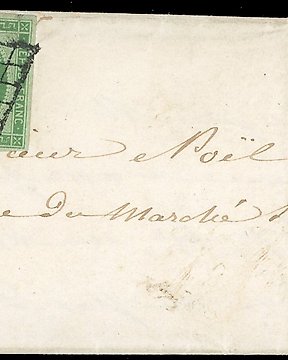 FRANC
sieur Noël
e du Marché S